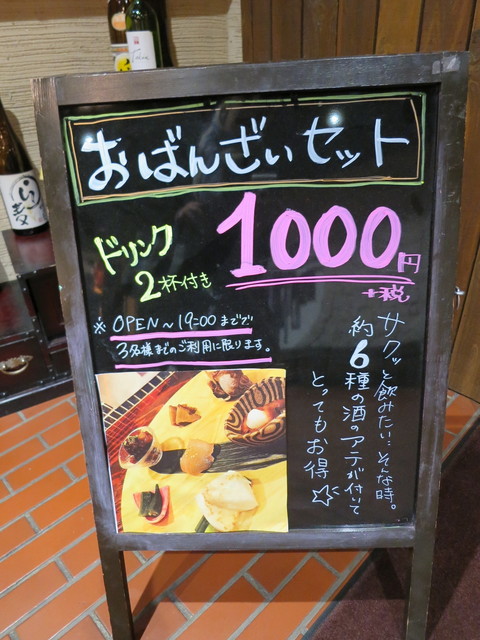 おばんざいセット
ドリンク
2杯付き
1000円
+税
※ OPEN～19:00までで
3名様までのご利用に限ります。
サクッと飲みたい…そんな時。
約6種の酒のアテが付いて
とってもお得☆